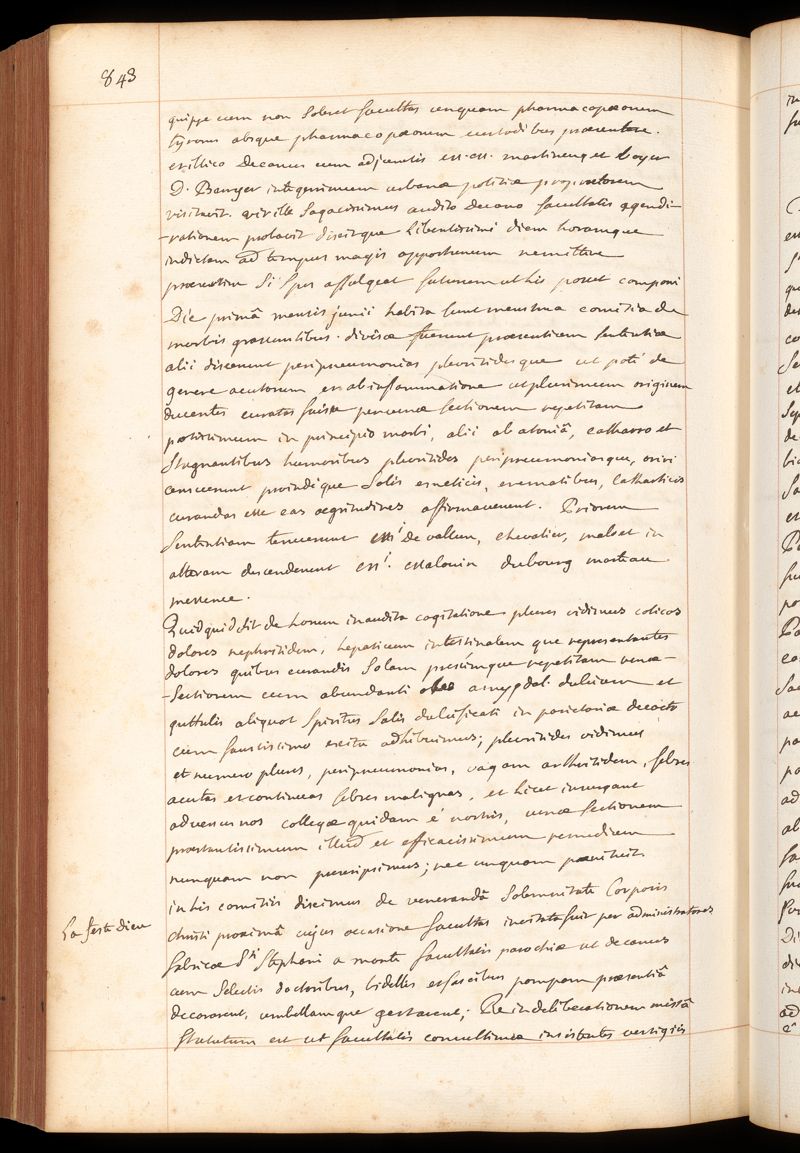 843
quippe cum non soleret facultas unquam pharmacopaeorum
tyrones absque pharmacopaeorum custodibus praesentare.
ex illico Decanus cum adjunctis ss. ss. martinenq et boyer
D. Berryer integerrimum urbanae politiae
visitavit. qui ille sagacissimus audito Decano facultatis agendi
-rationem probavit dixitque libentissime diem horamque
indictam ad tempus magis opportunum remittere
praesertim si spes affulgeat futurum ut his posset componi
Die primâ mensis junii habita sunt menstrua comitia de
morbis grassantibus. divisae fuerunt praesentium sententiae
alii dixerunt peripneumonias pleuritidesque ut poté de
genere acutorum et ab inflammatione ut plurimum originem
ducentes curatas fuisse per venae sectionem repetitam
potissimum in principio morbi, alii ab atoniâ, catharro et
stagnantibus humoribus pleuritides peripneumoniasque, oriri
censuerunt proindeque solis emeticis, enematibus, catharticis
curandas esse eas aegritudines affirmaverunt. Priorem
sententiam tenuerunt mi de vallun, chevalier, maloet in
alteram descenderunt mi. malouin dubourg marteau
messence.
Quidquid sit de horum inaudita cogitatione plures vidimus colicos
dolores nephritidem, hepaticum intestinalem que repraesentantes
dolores quibus curandis solam pressimque repetitam venae-
-sectionem cum abundanti oleo amygdal. dulcium et
guttulis aliquot spiritus salis dulcificati in parietariae decocto
cum faustissimo exitu adhibuimus; pleuritides vidimus
et numero plures, peripneumonias, vagam arthritidem, febres
acutas et continuas febres malignas, et licet insurgant
adversus nos collegae quidam é nostris, venae sectionem
praestantissimum illud et efficacissimum remedium
nunquam non praescripsimus; nec unquam paenituit
in his comitiis diximus de venerandâ solemnitate Corporis
La feste dieu
christi proximâ cujus occasione facultas invitata fuit per administratores
fabricae Sti Stephani a monte facultatis parochiae ut decanus
cum selectis doctoribus, bidellis et fascibus pompam praesentiâ
decorarent, umbellamque gestarent; Re in deliberationem missâ
statutum est ut facultatis consultissimae insistentes vestigiis